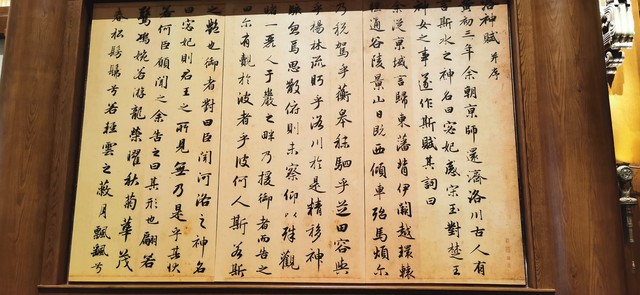 洛神賦 并序
黃初三年余朝京師還濟洛川古人有
言斯水之神名曰宓妃感宋玉對楚王
神女之事遂作斯賦其詞曰
余從京域言歸東藩背伊闕越轘轅
經通谷陵景山日既西傾車殆馬煩尔
乃稅駕乎蘅皋秣駟乎芝田容與
乎楊林流眄乎洛川於是精移神
駭忽焉思散俯則未察仰以殊觀
睹一麗人于巖之畔乃援御者而告之
曰尔有覿於彼者乎彼何人斯若斯
之豔也御者對曰臣聞河洛之神名
曰宓妃則君王之所見無乃是乎其狀
若何臣願聞之余告之曰其形也翩若
驚鴻婉若游龍榮曜秋菊華茂
春松髣髴兮若輕雲之蔽月飄飄兮